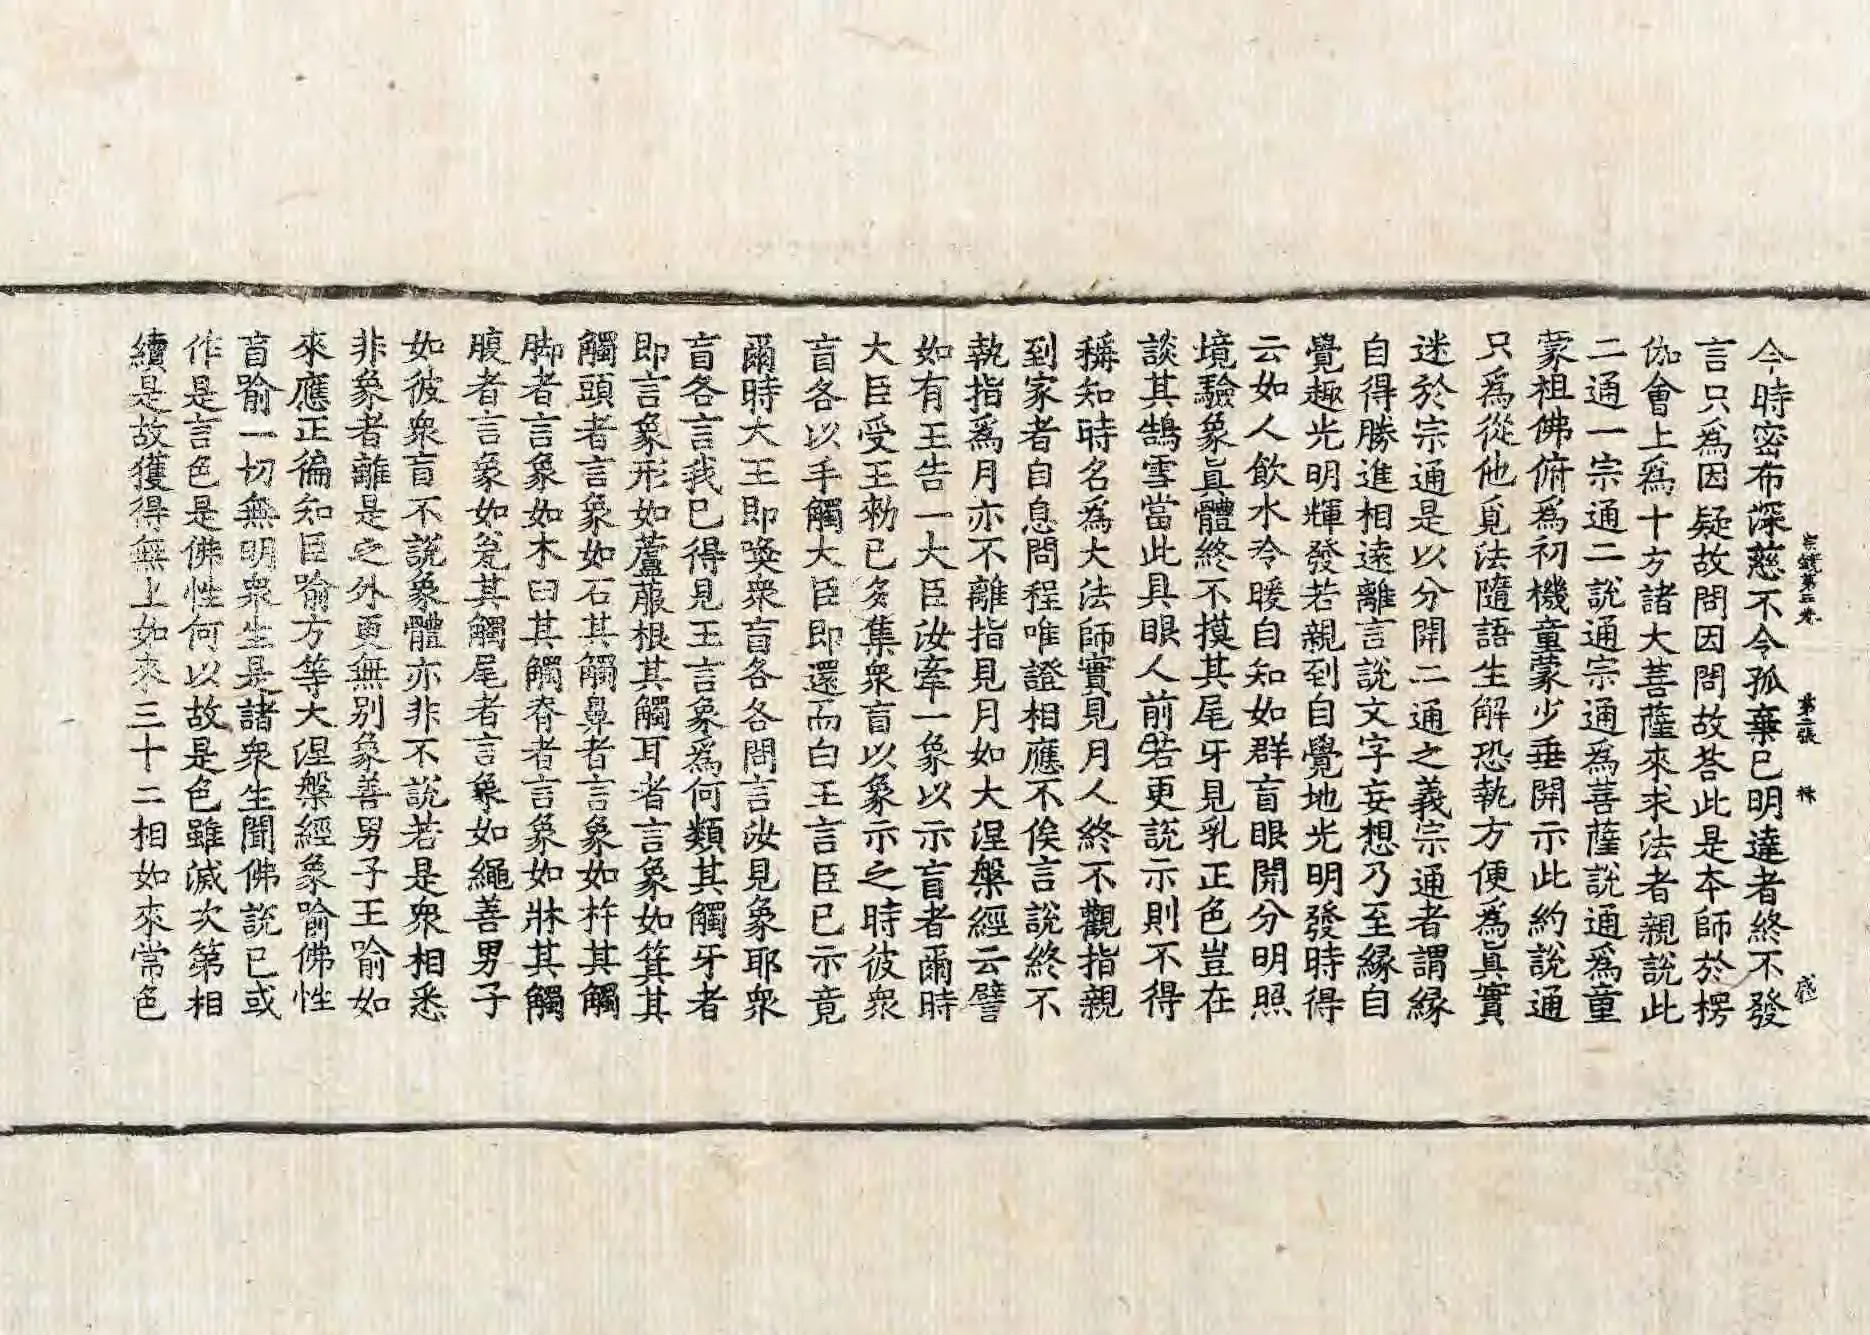 宗鏡第三卷 第二張 感
今時密布深慈不令孤棄已明達者終不發
言只為因疑故問因問故荅此是本師於楞
伽會上為十方諸大菩薩來求法者親說此
二通一宗通二說通宗通為菩薩說通為童
蒙祖佛俯為初機童蒙少垂開示此約說通
只為從他覓法隨語生解恐執方便為真實
迷於宗通是以分開二通之義宗通者謂緣
自得勝進相遠離言說文字妄想乃至緣自
覺趣光明輝發若親到自覺地光明發時得
云如人飲水冷暖自知如群盲眼開分明照
境驗象真體終不摸其尾牙見乳正色豈在
談其鵠雪當此具眼人前若更說示則不得
稱知時名為大法師實見月人終不觀指親
到家者自息問程唯證相應不俟言說終不
執指為月亦不離指見月如大涅槃經云譬
如有王告一大臣汝牽一象以示盲者爾時
大臣受王勑已多集眾盲以象示之時彼眾
盲各以手觸大臣即還而白王言臣已示竟
爾時大王即喚眾盲各各問言汝見象耶眾
盲各言我已得見王言象為何類其觸牙者
即言象形如蘆菔根其觸耳者言象如箕其
觸頭者言象如石其觸鼻者言象如杵其觸
脚者言象如木臼其觸脊者言象如牀其觸
腹者言象如瓮其觸尾者言象如繩善男子
如彼眾盲不說象體亦非不說若是眾相悉
非象者離是之外更無別象善男子王喻如
來應正徧知臣喻方等大涅槃經象喻佛性
盲喻一切無明眾生是諸眾生聞佛說已或
作是言色是佛性何以故是色雖滅次第相
續是故獲得無上如來三十二相如來常色